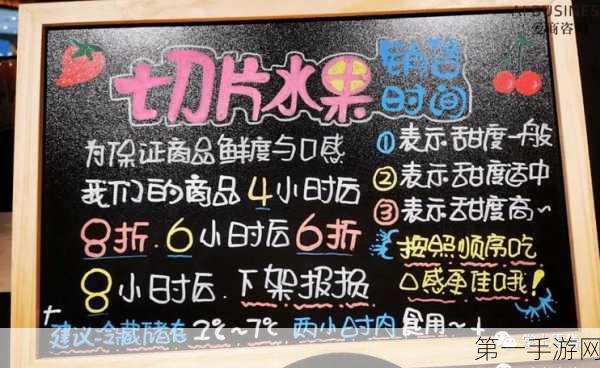 切片水果 销售时间
为保证商品鲜度与口感
我们的商品4小时后
8折.6小时后6折
8小时后.下架报损
建议-冷藏储存2℃~7℃ 两小时内食用~
①表示甜度一般
②表示甜度适中
③表示甜度高~
按照顺序吃
口感更佳哦!
爱商咨
第一手游网